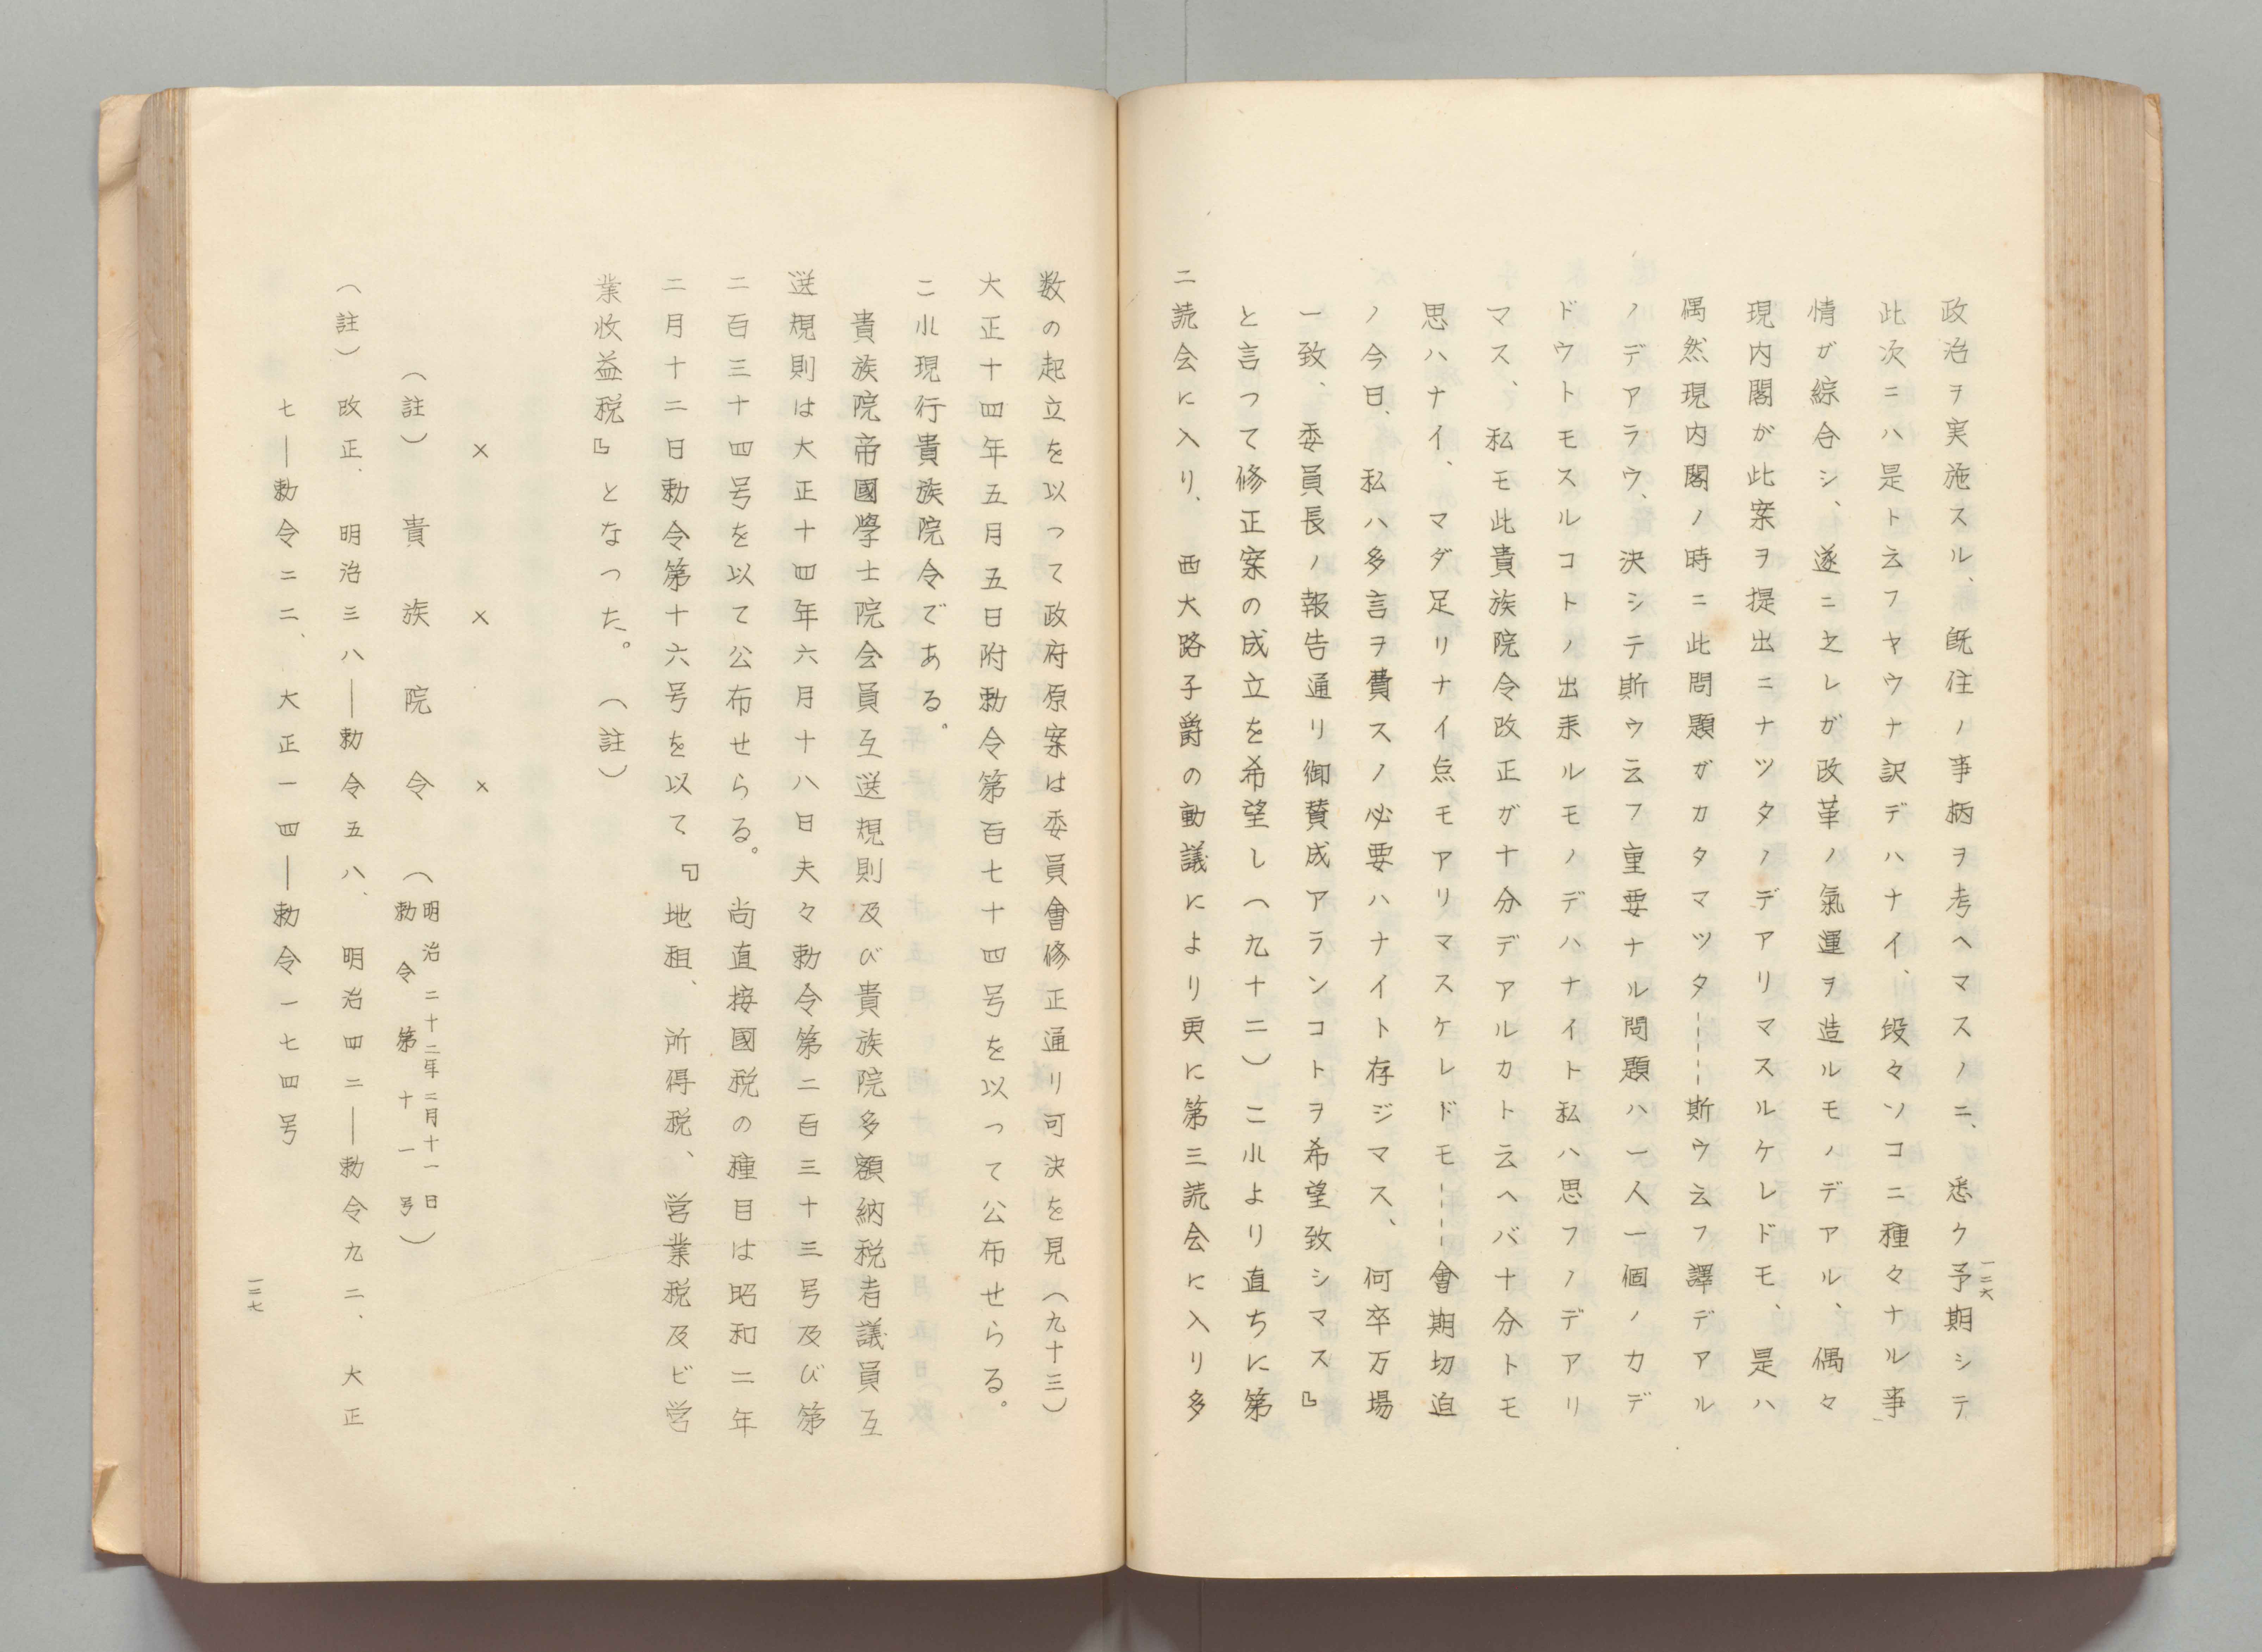 政治ヲ実施スル、既往ノ事柄ヲ考ヘマスノニ、悉ク予期シテ
此次ニハ是ト云フヤウナ訳デハナイ、段々ソコニ種々ナル事
情ガ綜合シ、遂ニ之レガ改革ノ氣運ヲ造ルモノデアル、偶々
現内閣が此案ヲ提出ニナツタノデアリマスルケレドモ、是ハ
偶然現内閣ノ時ニ此問題ガカタマツタ-----斯ウ云フ譯デアル
ノデアラウ、決シテ斯ウ云フ重要ナル問題ハ一人一個ノカデ
ドウトモスルコトノ出来ルモノデハナイト私ハ思フノデアリ
マス、私モ此貴族院令改正ガ十分デアルカト云ヘバ十分トモ
思ハナイ、マダ足リナイ点モアリマスケレドモ-----會期切迫
ノ今日、私ハ多言ヲ費スノ必要ハナイト存ジマス、何卒万場
一致、委員長ノ報告通リ御賛成アランコトヲ希望致シマス』
と言つて修正案の成立を希望し（九十二）こ小より直ちに第
二読会に入り、西大路子爵の動議により更に第三読会に入り多
一二六
数の起立を以つて政府原案は委員會修正通り可決を見（九十三）
大正十四年五月五日附勅令第百七十四号を以つて公布せらる。
こ小現行貴族院令である。
貴族院帝國學士院会員互送規則及び貴族院多額納税者議員互
送規則は大正十四年六月十八日夫々勅令第二百三十三号及び第
二百三十四号を以て公布せらる。尚直接國税の種目は昭和二年
二月十二日勅令第十六号を以て『地租、所得税、営業税及ビ営
業收益税』となつた。（註）
×　×　×
（註）貴族院令（明治二十二年二月十一日
勅令第十一号）
（註）改正、明治三八―勅令五八、明治四二―勅令九二、大正
七―勅令二二、大正一四―勅令一七四号
一二七